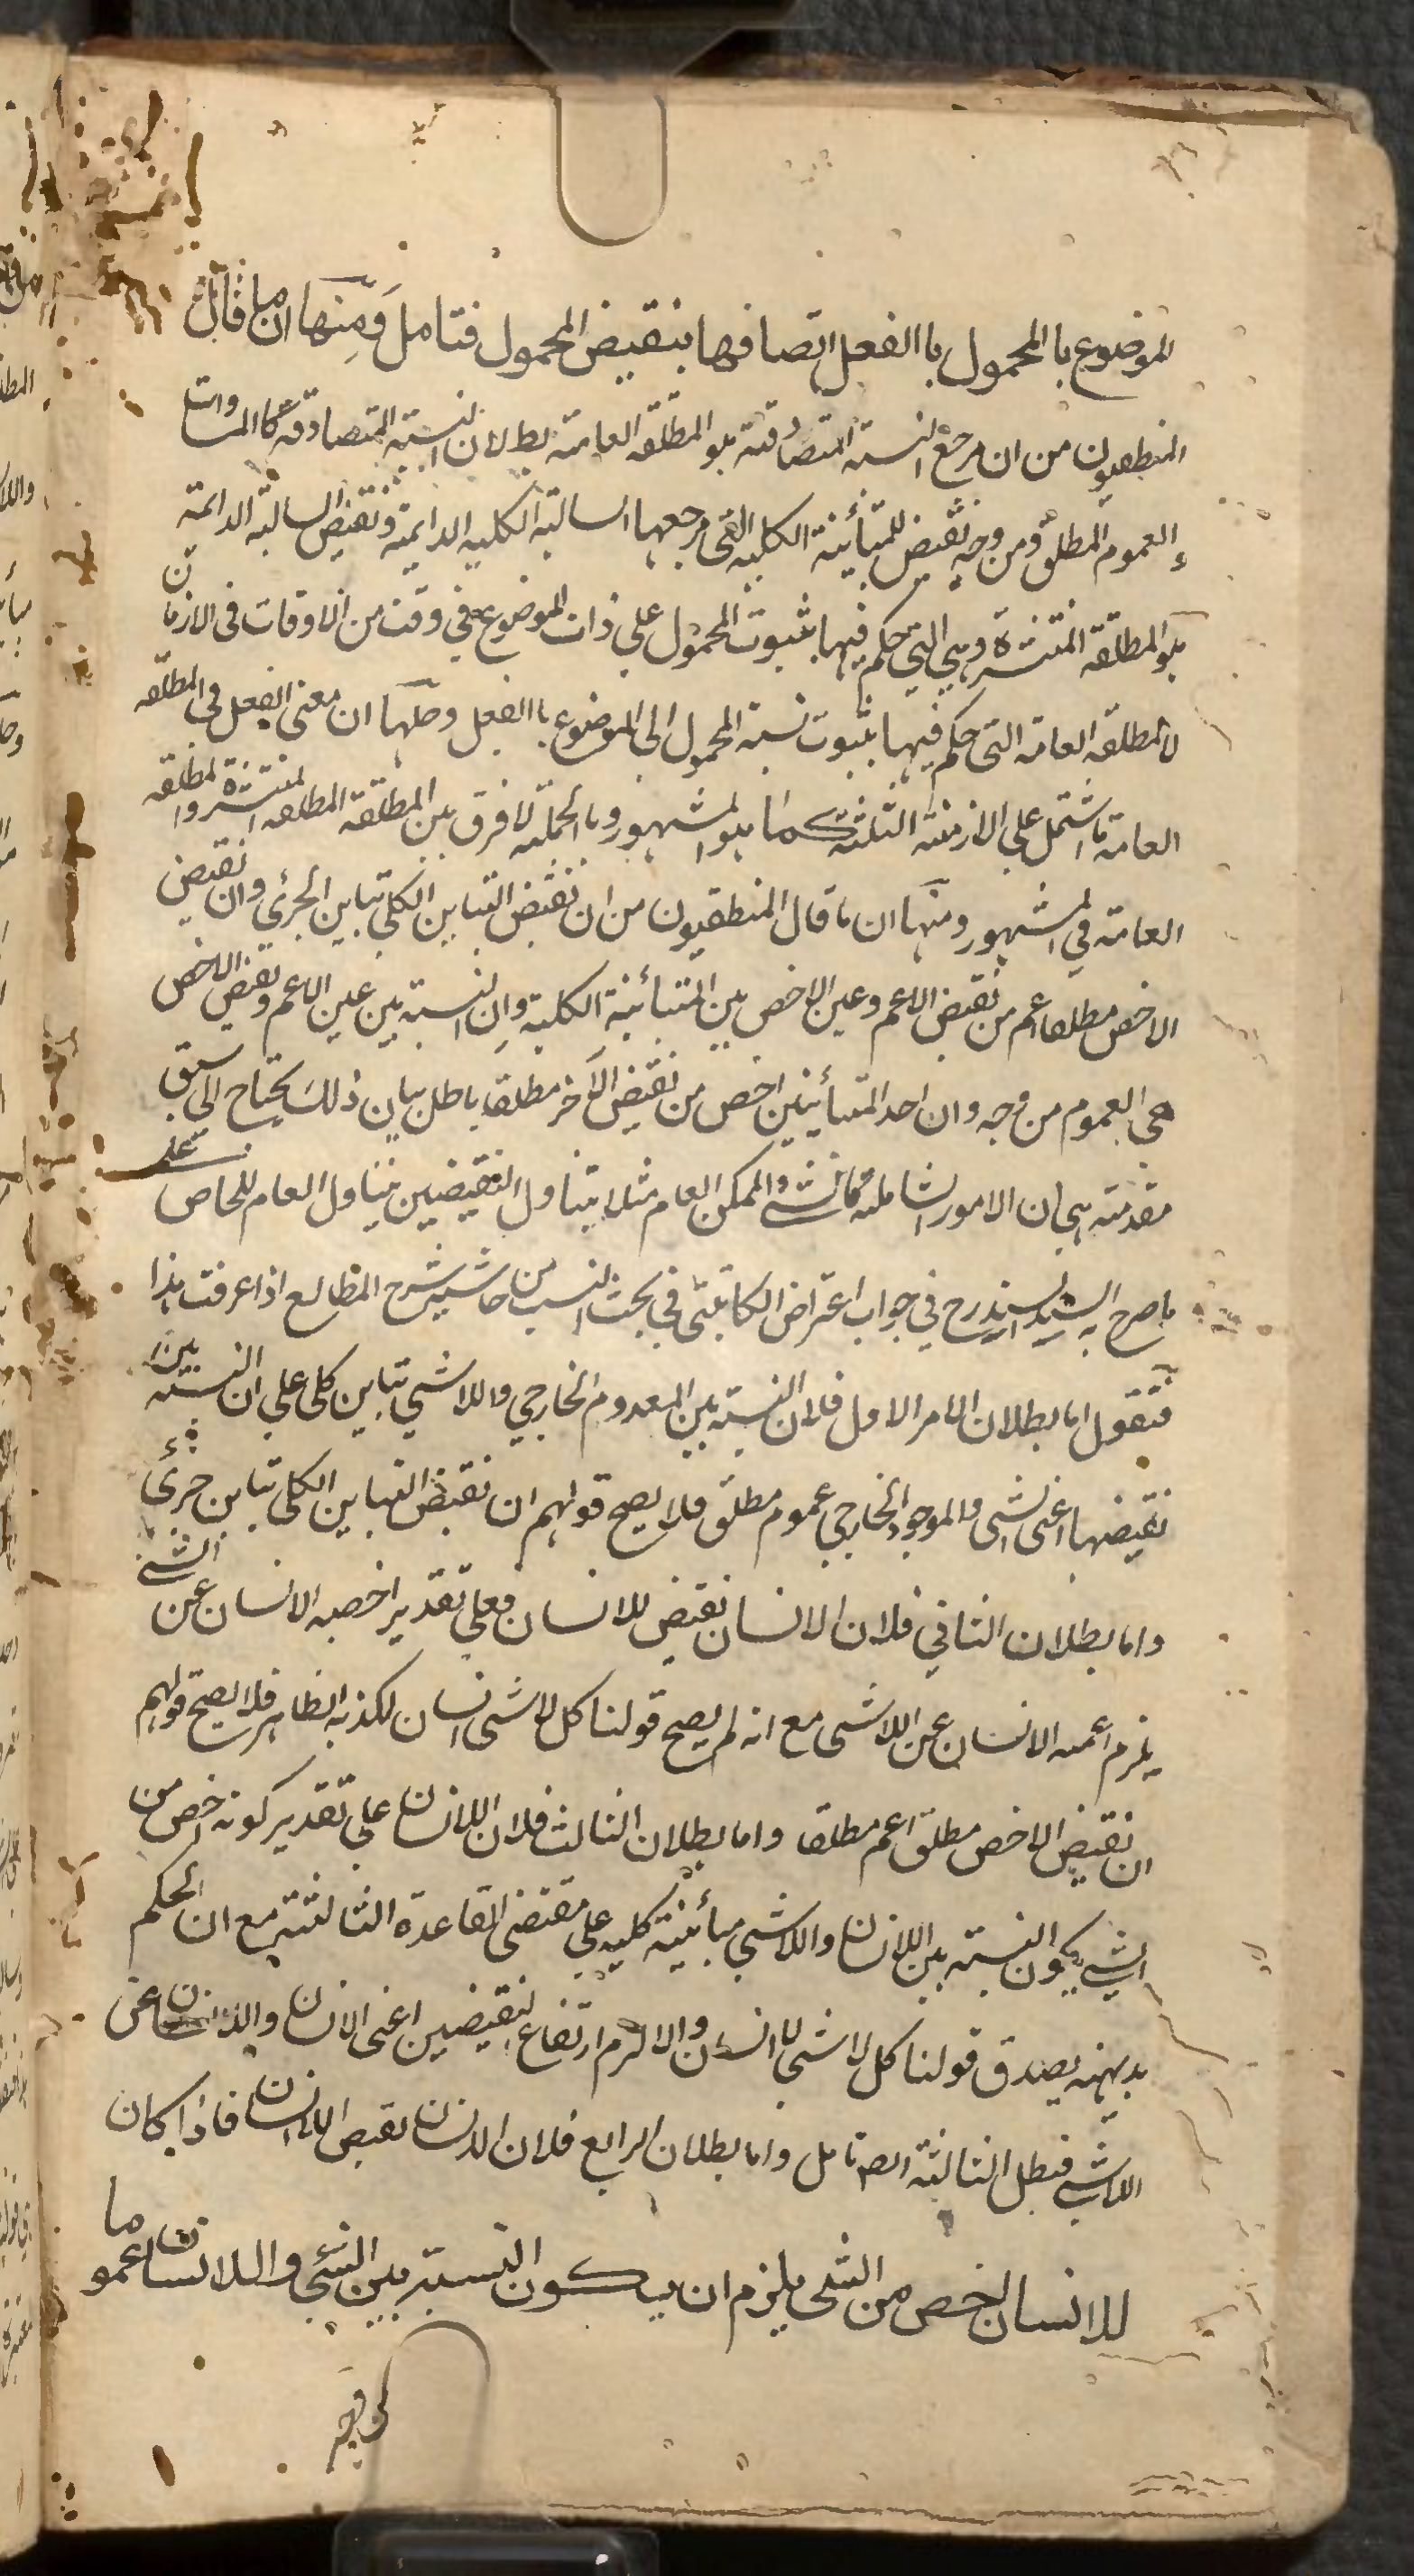 الموضوع با المحمول با الفعل اتصافها بنقيض المحمول فتامل ومنها ان ما قال
المنطقيون من ان مرجع النسبته المتصادقته هو المطلقه العامته بط لان النسبته المتصادقه كالمساوات
و العموم المطلق ومن وجه نقيض للمتبأينة الكليه التي مرجعها السالبة الكليه الدايمة ونقيض السالبة الدائمة
هو المطلقة المنتشرة وهي التي حكم فيها بثبوت المحمول على ذات الموضوع في وقت من الاوقات في الازمان
لا المطلقه العامة التي حكم فيها بثبوت نسبة المحمول الى الموضوع با الفعل وحلها ان معنى الفعل في المطلقه
العامة ما اشتمل على الازمنة الثلثة كما هو المشهور وبا الجملة لا فرق بين المطلقة المطلقه المنتشرة والمطلقه
العامة في المشهور ومنها ان ما قال المنطقيون من ان نقيض التباين الكلي تباين الجزئي وان نقيض
الاخص مطلقا اعم من نقيض الاعم وعين الاخص بين المتبأينة الكلية وان النسبته بين عين الاعم ونقيض الاخص
هي العموم من وجه وان احد المتبأينين اخص من نقيض الآخر مطلقا باطل بيان ذلك يحتاج الى سبق
مقدمته هي ان الامور الشاملة كالشئ والممكن العام مثلا يتناول النقيضين تناول العام للخاص على
ما صرح به السيد السند رح في جواب اعتراض الكاتبي في بحث النسب من حاشية شرح المطالع اذا عرفت هذا
فنقول اما بطلان الامر الاول فلان النسبته بين المعدوم الخارجي واللاشي تباين كلي على ان النسبته بين
نقيضها اعنى الشي والموجود الخارجي عموم مطلق فلا يصح قولهم ان نقيض التباين الكلي تباين جزئي
واما بطلان الثاني فلان الانسان نقيض للانسان فعلى تقدير اخصيه الانسان عن الشئ
يلزم اعميه الانسان عن اللاشي مع انه لم يصح قولنا كل لاشي انسان لكذبه الظاهر فلا يصح قولهم
ان نقيض الاخص مطلق اعم مطلقا واما بطلان الثالث فلان اللانسان على تقدير كونه اخص من
الشي يكون النسبته بين اللانسان واللاشي مبأينة كليه على مقتضى القاعدة الثالثة مع ان الحكم
بديهته يصدق قولنا كل لاشي لا انسان والا لزم ارتفاع النقيضين اعنى الانسان واللانسان عن
اللاشي فبطل الثالثة ايضا تامل واما بطلان الرابع فلان الانسان نقيض اللانسان فاذا كان
للانسان اخص من الشي يلزم ان يكون النسبته بين الشي واللانسان عموما
من وجه